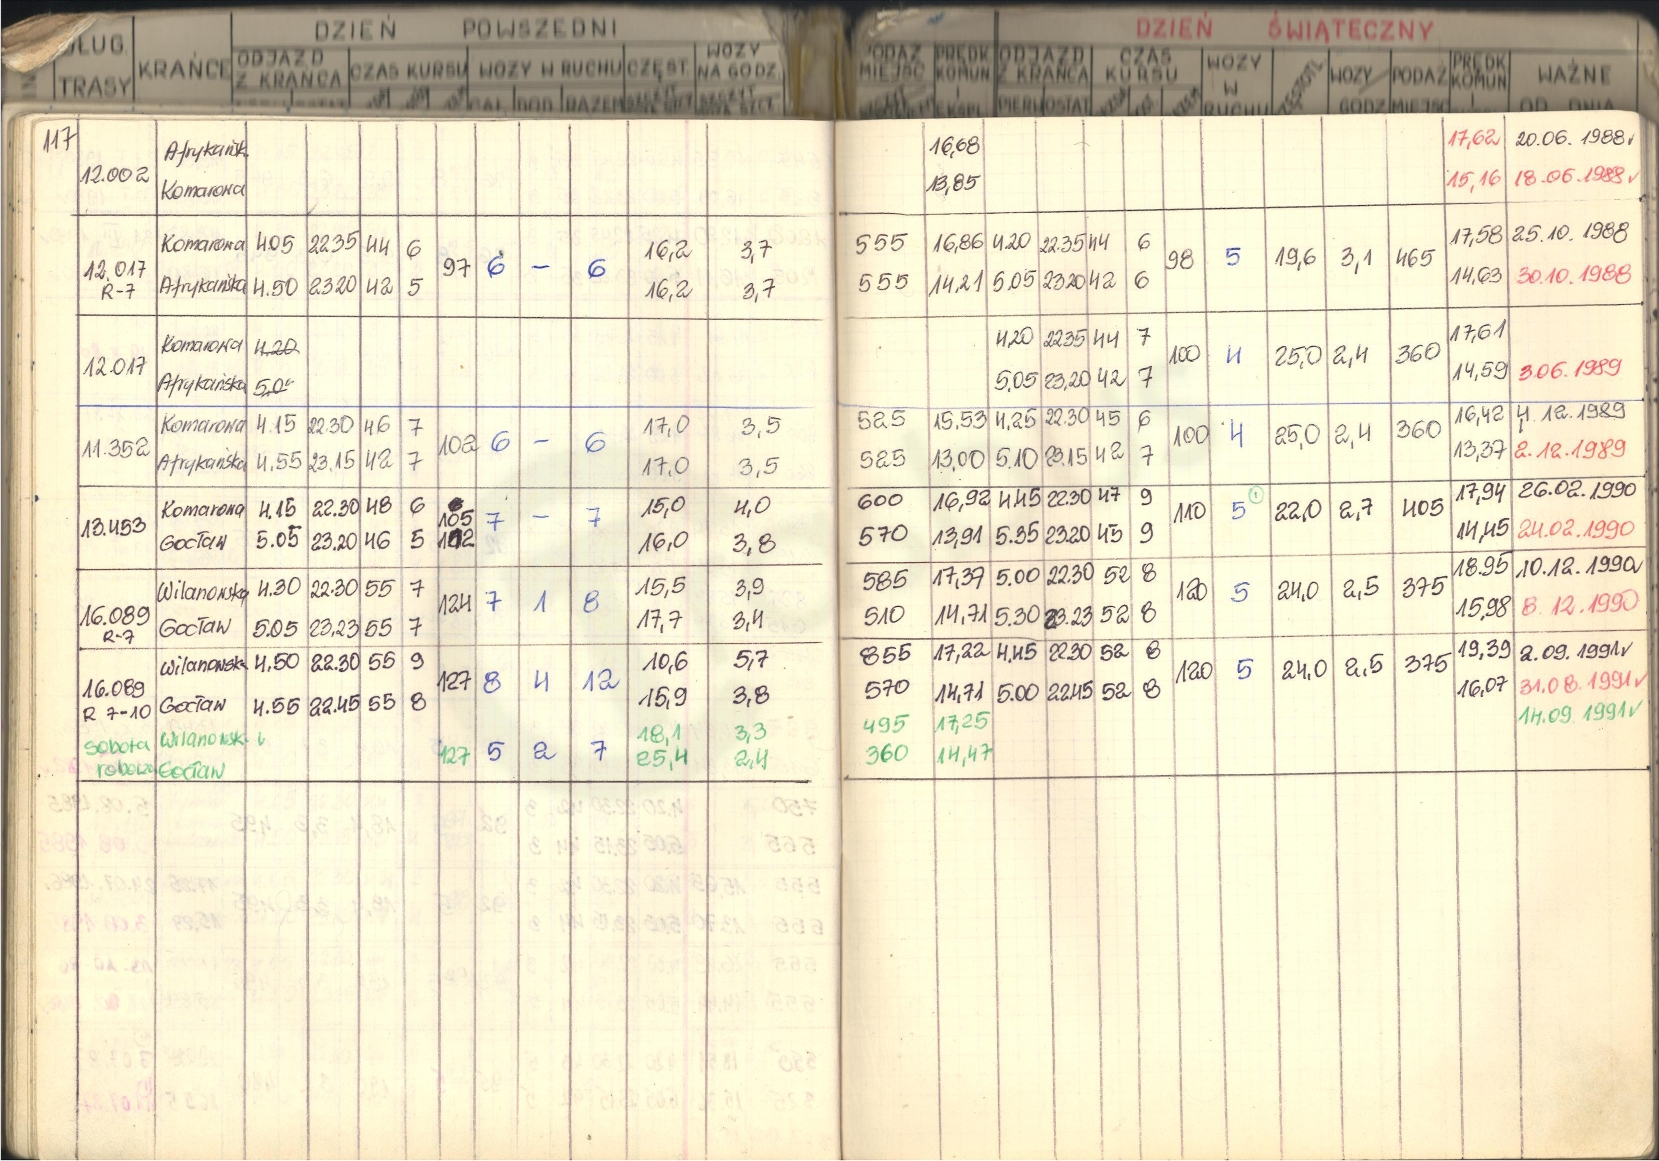 DZIEŃ POWSZEDNI DZIEŃ ŚWIĄTECZNY
DŁUG. TRASY KRAŃCE ODJAZD Z KRAŃCA CZAS KURSU WOZY W RUCHU CZĘST. WOZY NA GODZ. PODAŻ MIEJSC PRĘDK KOMUN I EKSPL ODJAZD Z KRAŃCA CZAS KURSU WOZY W RUCHU WOZY GODZ PODAŻ MIEJSC PRĘDK KOMUN I WAŻNE OD DNIA
DOD. RAZEM PIERW OSTAT
117
12.002 Afrykańsk. 16,68 17,62 20.06.1988
Komarowa 13,85 15,16 18.06.1988
12.017 R-7 Komarowa 4.05 22.35 44 6 97 6 – 6 16,2 3,7 555 16,86 4.20 22.35 44 6 98 5 19,6 3,1 465 17,58 25.10.1988
Afrykańska 4.50 23.20 42 5 16,2 3,7 555 14,21 5.05 23.20 42 6 14,63 30.10.1988
12.017 Komarowa 4.20 4.20 22.35 44 7 100 4 25,0 2,4 360 17,61
Afrykańska 5.0 5,05 23,20 42 7 14,59 3.06.1989
11.352 Komarowa 4.15 22.30 46 7 102 6 – 6 17,0 3,5 525 15,53 4,25 22.30 45 6 100 4 25,0 2,4 360 16,42 4.12.1989
Afrykańska 4.55 23.15 42 7 17,0 3,5 525 13,00 5.10 23.15 42 7 13,37 2.12.1989
13.453 Komarowa 4.15 22.30 48 6 105 7 – 7 15,0 4,0 600 16,92 4.45 22.30 47 9 110 5 22,0 2,7 405 17,94 26.02.1990
Gocław 5.05 23.20 46 5 16,0 3,8 570 13,91 5.35 23.20 45 9 14,45 24.02.1990
16.089 R-7 Wilanowska 4.30 22.30 55 7 124 7 1 8 15,5 3,9 585 17,37 5.00 22.30 52 8 120 5 24,0 2,5 375 18.95 10.12.1990
Gocław 5.05 23,23 55 7 17,7 3,4 510 14,71 5.30 23.23 52 8 15,98 8.12.1990
16.089 R 7-10 Wilanowsk. 4.50 22.30 55 9 127 8 4 12 10,6 5,7 855 17,22 4.45 22.30 52 8 120 5 24,0 2,5 375 19,39 2.09.1991
Gocław 4.55 22.45 55 8 15,9 3,8 570 14,71 5.00 22.45 52 8 16,07 31.08.1991
sobota robocza Wilanowsk. 127 5 2 7 18,1 3,3 495 17,25 14.09.1991
Gocław 25,4 2,4 360 14,47